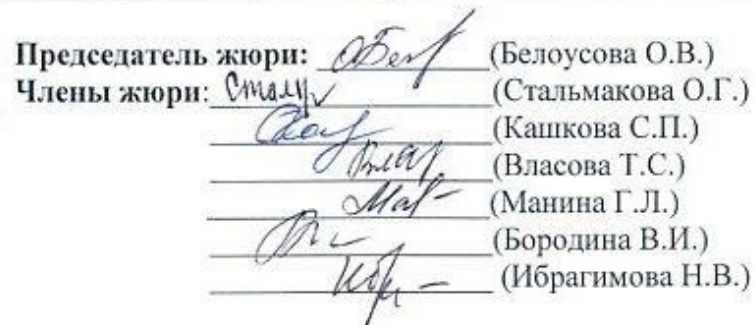 Председатель жюри: (Белоусова О.В.)
Члены жюри: (Стальмакова О.Г.)
(Кашкова С.П.)
(Власова Т.С.)
(Манина Г.Л.)
(Бородина В.И.)
(Ибрагимова Н.В.)